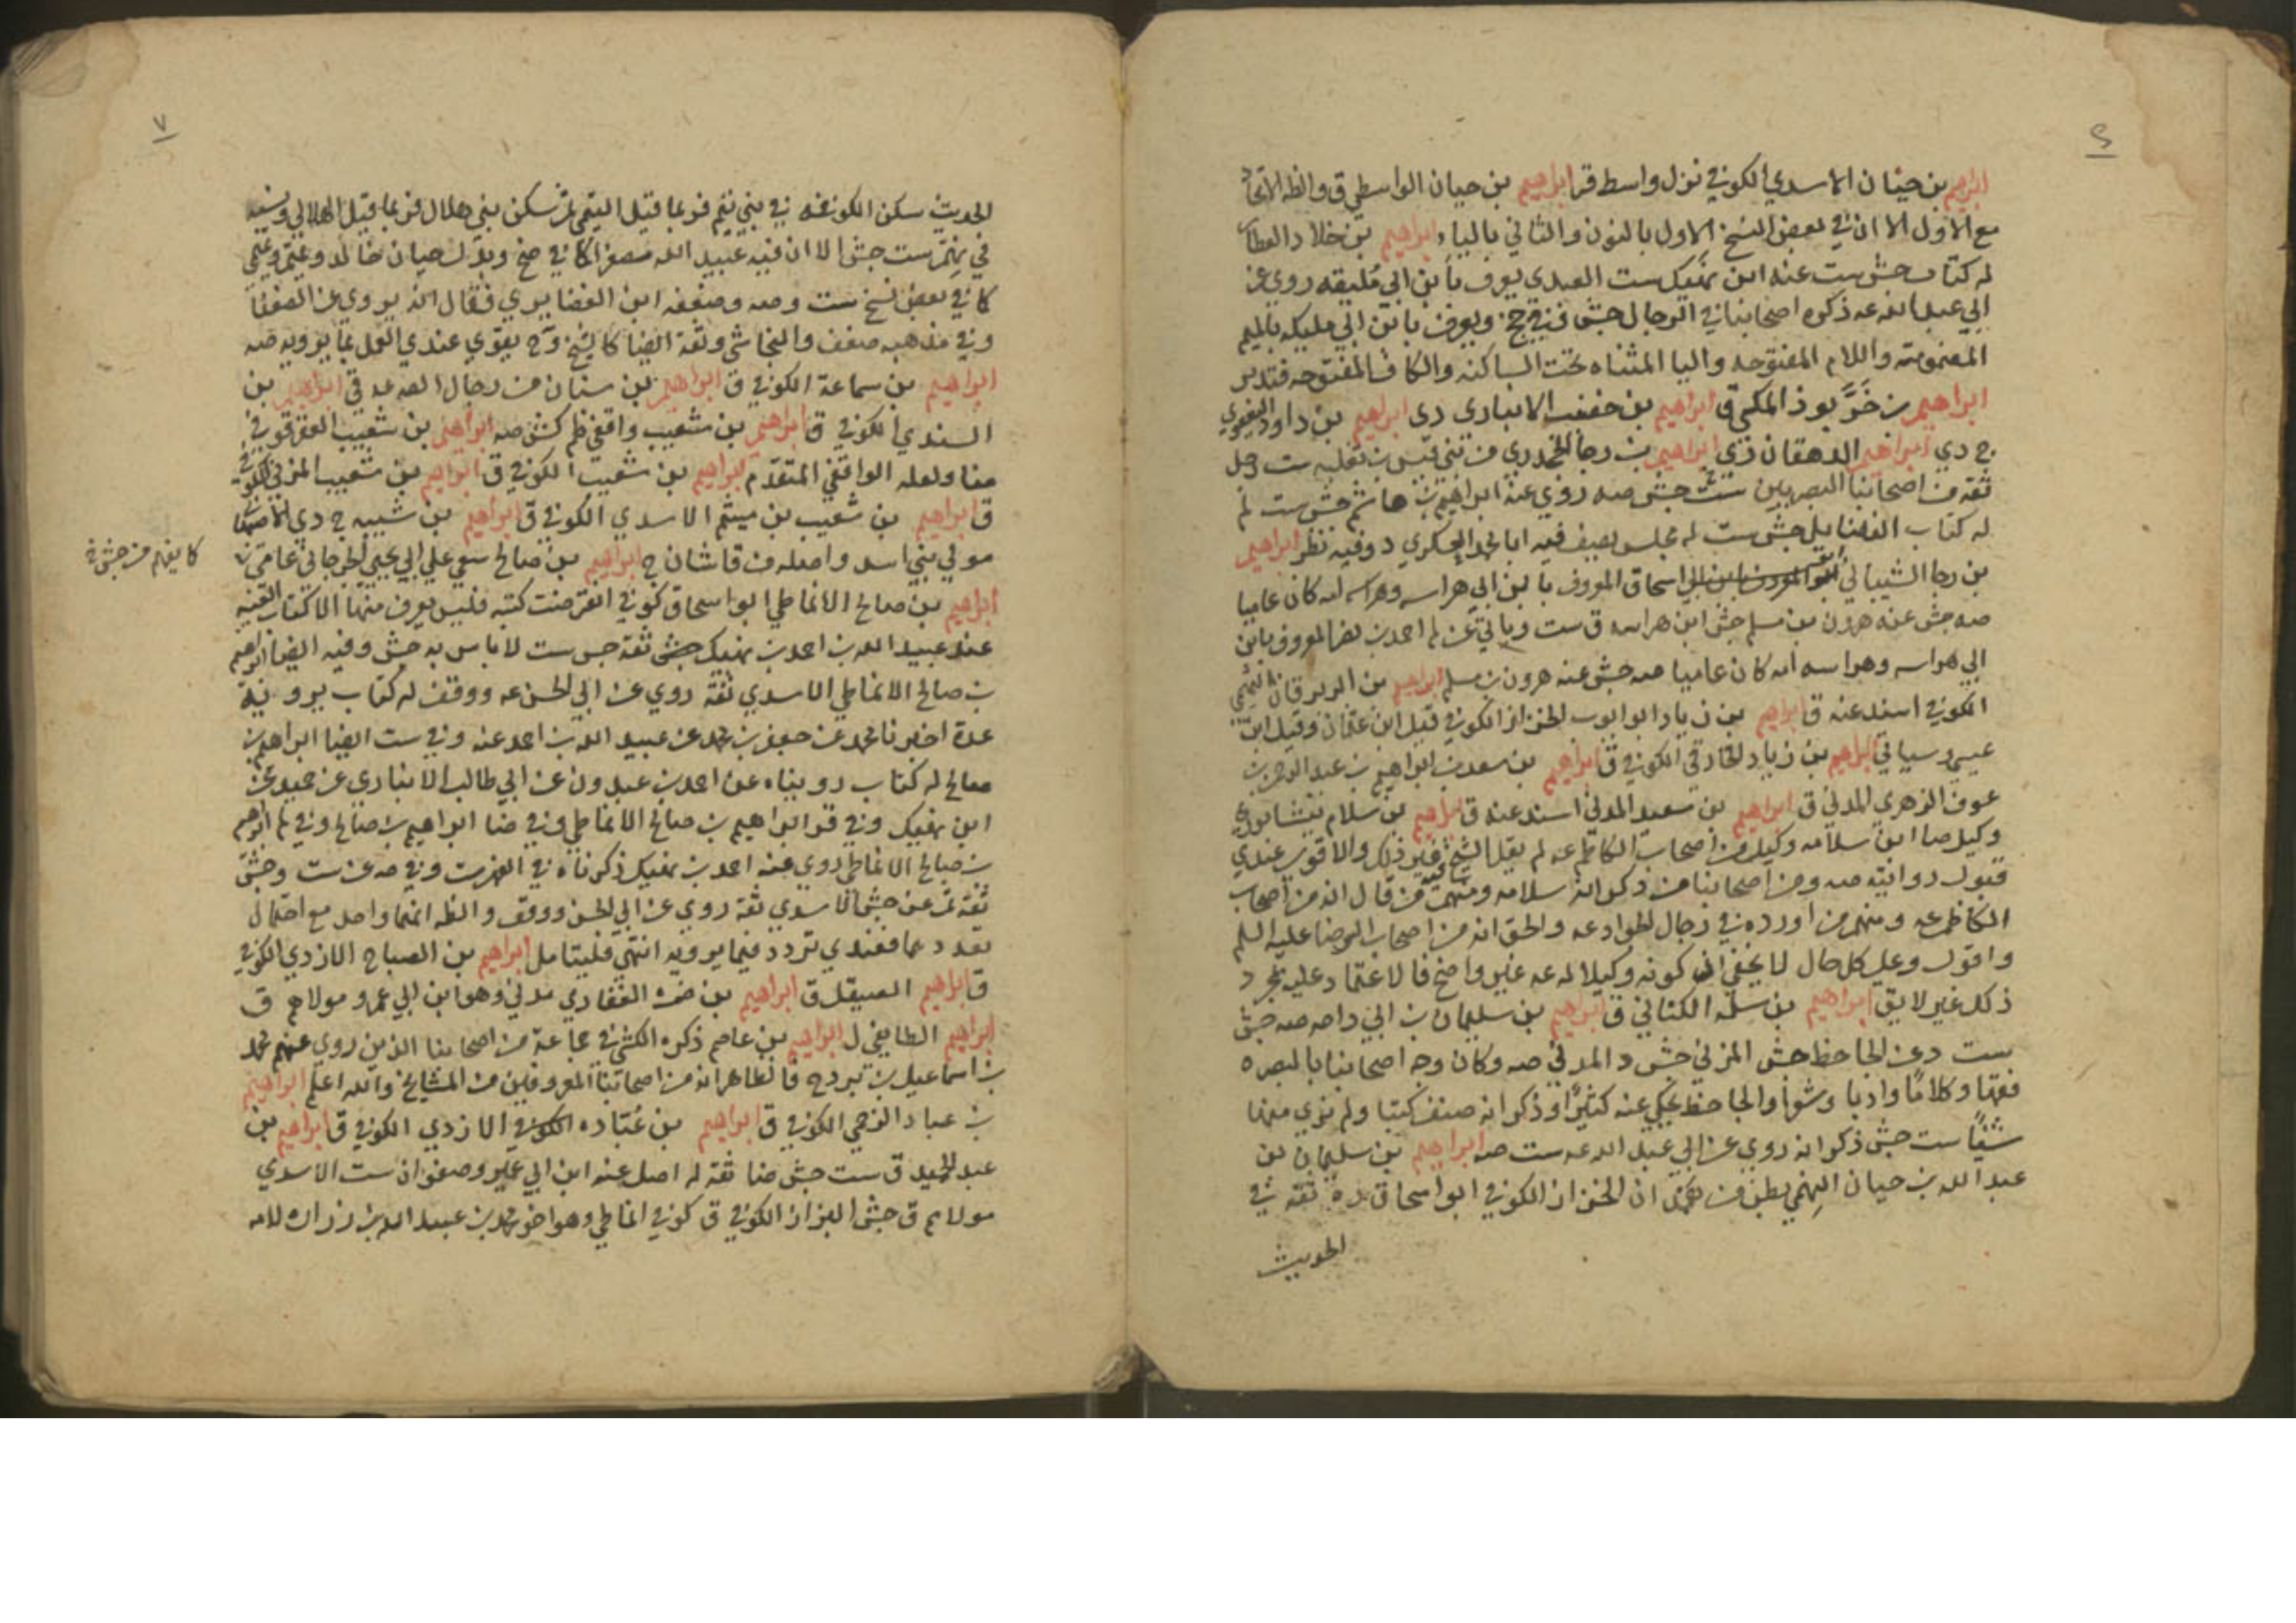 ابراهيم بن حيان الاسدي الكوفي نزل واسط قر ابراهيم بن حيان الواسطي ق والظ الاتحاد
مع الاول الا ان في بعض النسخ الاول بالنون والثاني بالياء ابراهيم بن خلاد العطار
له كتاب جش ست عنه ابن نهيك ست العبدي يعرف بابن ابي مليقه روى عن
ابي عبد الله عه ذكره اصحابنا في الرجال جش في ج ويعرف بابن ابي مليكه بالميم
المضمومة واللام المفتوحه واليا المثناه تحت الساكنه والكاف المفتوحه فتدبر
ابراهيم بن خرّبوذ المكي ق ابراهيم بن خضيب الانباري دي ابراهيم بن داود اليعقوبي
ج دي ابراهيم الدهقان دي ابراهيم بن رجا الجحدري من بني قيس بن ثعلبه ست رجل
ثقه من اصحابنا البصريين ست جش صه روى عنه ابراهيم بن هاشم جش ست لم
له كتاب الفضايل جش ست له مجلس يصف فيه ابا محمد العسكري د وفيه نظر ابراهيم
بن رجا الشيباني ابو اسحاق المعروف بابن ابي هراسه وهراسه امه كان عاميا
صه جش عنه هرون بن مسلم جش ابن هراسه ق ست وياتي عن لم احمد بن نصر المعروف بابن
ابي هراسه وهراسه امه كان عاميا صه جش عنه هرون بن مسلم ابراهيم بن الزبرقان التيمي
الكوفي اسند عنه ق ابراهيم بن زياد ابو ايوب الخزاز الكوفي قيل ابن عثمان وقيل ابن
عيسى وسياتي ابراهيم بن زياد الخارقي الكوفي ق ابراهيم بن سعد بن ابراهيم بن عبد الرحمن بن
عوف الزهري المدني ق ابراهيم بن سعيد المدني اسند عنه ق ابراهيم بن سلام نيشابوري
وكيل ضا ابن سلامه وكيل من اصحاب الكاظم عه لم يقل الشيخ فيه غير ذلك والاقوى عندي
قبول روايته صه ومن اصحابنا من ذكر انه سلامه ومنهم من قال انه من اصحاب
الكاظم عه ومنهم من اورده في رجال الجواد عه والحق انه من اصحاب الرضا عليه السلم
واقول وعلى كل حال لا يخفى ان كونه وكيلا له عه غير واضح فالاعتماد عليه بمجرد
ذلك غير لايق ابراهيم بن سلمه الكناني ق ابراهيم بن سليمان بن ابي داحه صه جش
ست د عن الجاحظ جش المزني جش د المدني صه وكان وجه اصحابنا بالبصره
فقها وكلاما وادبا وشعرا والجاحظ يحكي عنه كثيرا وذكر انه صنف كتبا ولم نرى منها
شيئا ست جش ذكر انه روى عن ابي عبد الله عه ست صه ابراهيم بن سليمان بن
عبد الله بن حيان النهمي بطن من همدان الخزاز الكوفي ابو اسحاق ثقه في
الحديث
الحديث سكن الكوفه في بني نهم فربما قيل التيمي ثم سكن بني هلال فربما قيل الهلالي ونسبه
في نهم ست جش الا ان فيه عبيد الله مصغرا كما في صح وبدل حيان خالد
كما في بعض نسخ ست وصه وضعفه ابن الغضايري فقال انه يروي عن الضعفا
وفي مذهبه ضعف والنجاشي وثقه ايضا كالشيخ وح يقوى عندي العمل بما يرويه صه
ابراهيم بن سماعة الكوفي ق ابراهيم بن سنان من رجال الصه عه ق ابراهيم بن
السندي الكوفي ق ابراهيم بن شعيب واقفي ظم كش صه ابراهيم بن شعيب العقرقوفي
ضا ولعله الواقفي المتقدم ابراهيم بن شعيب الكوفي ق ابراهيم بن شعيب المزني الكوفي
ق ابراهيم بن شعيب بن ميثم الاسدي الكوفي ق ابراهيم بن شيبه ج دي الاصبهاني
مولى بني اسد واصله من قاشان ج ابراهيم بن صالح سعى على ابي يحيى الجرجاني عامي
كا يفهم من جش
ابراهيم بن صالح الانماطي ابو اسحاق كوفي انقرضت كتبه فليس يعرف منها الا كتاب الغيبه
عنه عبيد الله بن احمد بن نهيك جش ثقه جش ست لا باس به جش وفيه ايضا ابراهيم
بن صالح الانماطي الاسدي ثقة روى عن ابي الحسن عه ووقف له كتاب يرويه
عدة اخبرنا محمد عن جعفر بن محمد عن عبيد الله بن احمد عنه وفي ست ايضا ابراهيم بن
صالح له كتاب رويناه عن احمد بن عبدون عن ابي طالب الانباري عن حميد عن
ابن نهيك وفي قر ابراهيم بن صالح الانماطي وفي ضا ابراهيم بن صالح وفي لم ابراهيم
بن صالح الانماطي روى عنه احمد بن نهيك ذكرناه في الفهرست وفي صه عن ست وجش
ثقة ثم عن جش الاسدي ثقه روى عن ابي الحسن ووقف والظ انهما واحد مع احتمال
تعددهما فعندي تردد فيما يرويه انتهى فليتامل ابراهيم بن الصباح الازدي الكوفي
ق ابراهيم الصيقل ق ابراهيم بن ضمره الغفاري مدني وهو ابن ابي عمرو مولاهم ق
ابراهيم الطايفي ل ابراهيم بن عاصم ذكره الكشي في جماعة من اصحابنا الذين روى عنهم محمد
بن اسماعيل بن بزيع فالظاهر انه من اصحابنا المعروفين من المشايخ والله اعلم ابراهيم
بن عباد البرجمي الكوفي ق ابراهيم بن عباده الازدي الكوفي ق ابراهيم بن
عبد الحميد ق ست جش ضا ثقة له اصل عنه ابن ابي عمير وصفوان ست الاسدي
مولاهم ق جش البزاز الكوفي ق كوفي انماطي وهو اخو محمد بن عبيد الله بن زراره لامه
٧